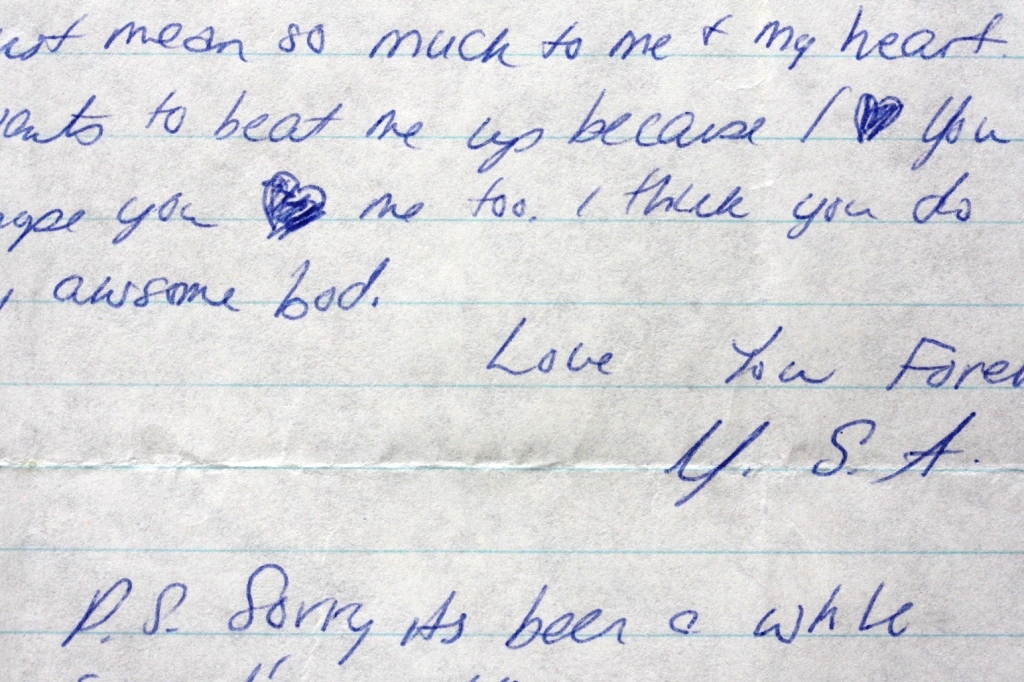 ust mean so much to me + my heart.
wants to beat me up because I ♥ You
hope you ♥ me too. I think you do
awsome bod.
Love You Forev
Y. S. A.
P.S. Sorry its been a while